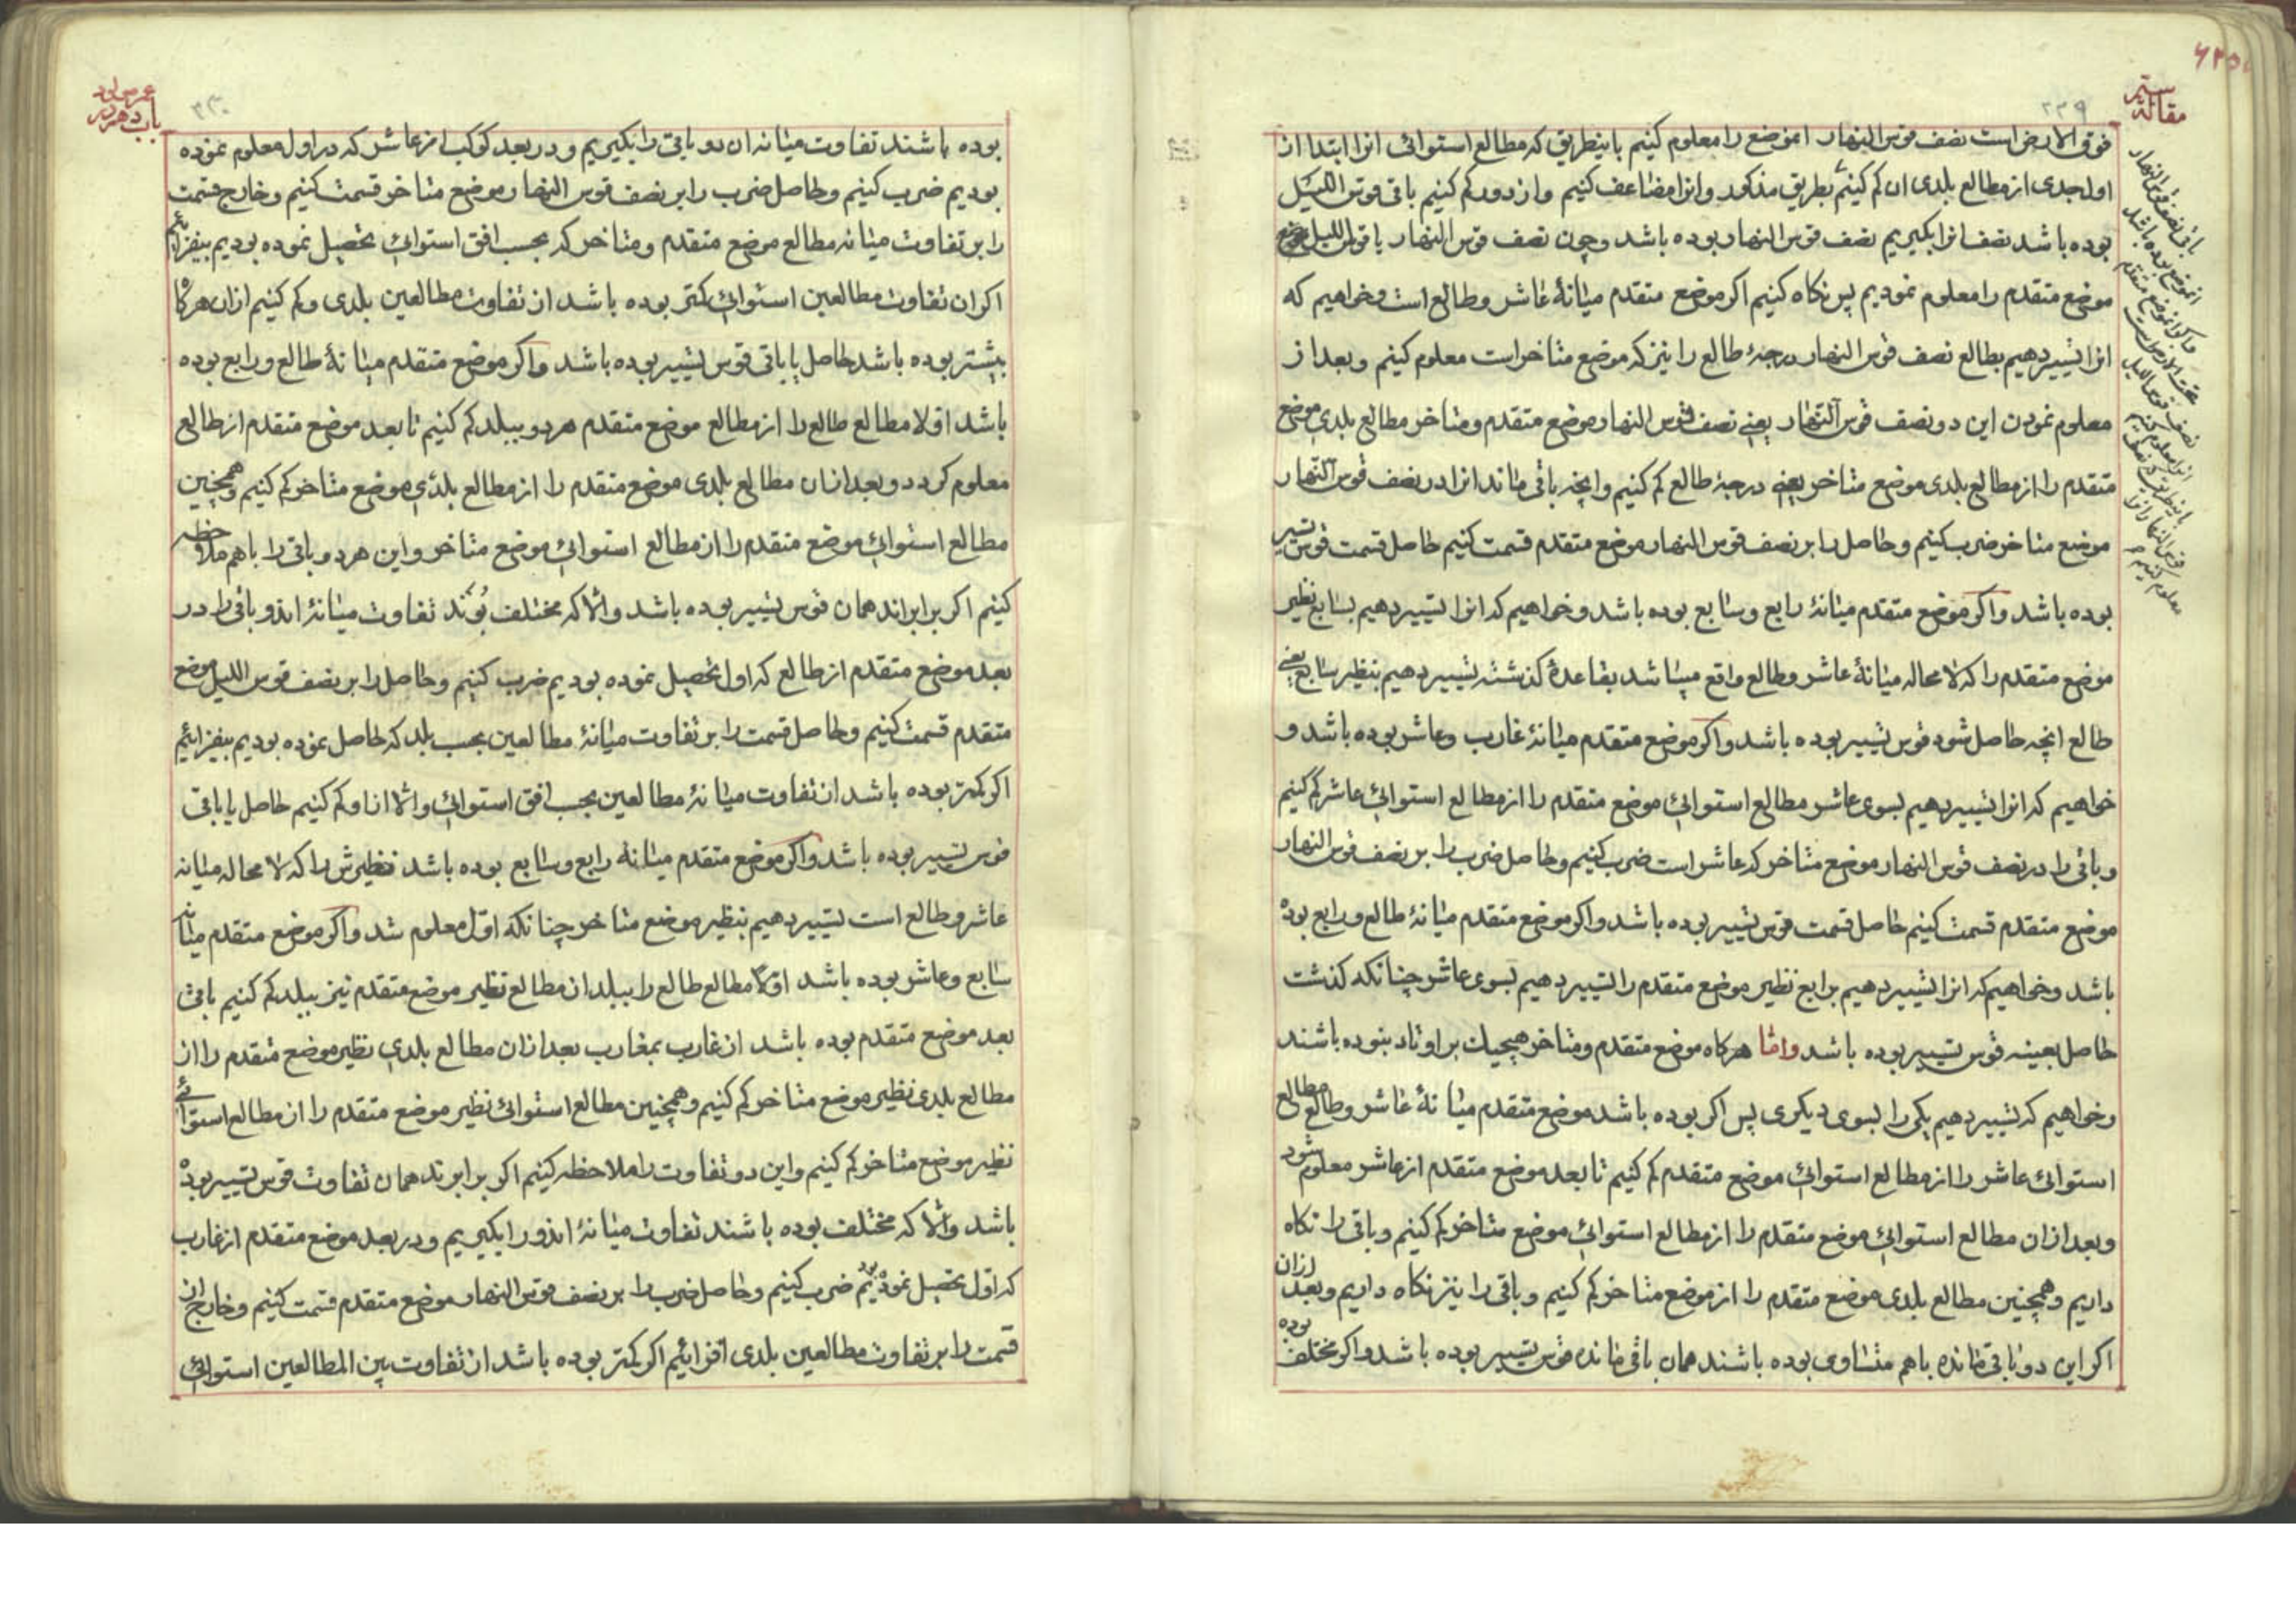 مقالهٔ
۲۲۹
فوق الارض است نصف قوس النهار انموضع را معلوم کنیم باینطریق که مطالع استوائی انرا ابتدا از
اول جدی از مطالع بلدی ان کم کنیم بطریق مذکور وانرا مضاعف کنیم واز دور کم کنیم باقی قوس اللیل
بوده باشد نصف انرا بکیریم نصف قوس النهار بوده باشد وچون نصف قوس النهار یا قوس اللیل موضع
موضع متقدم را معلوم نمودیم پس نکاه کنیم اکر موضع متقدم میانهٔ عاشر وطالع است وخواهیم که
انرا تسییر دهیم بطالع نصف قوس النهار درجهٔ طالع را نیز که موضع متاخر است معلوم کنیم وبعد از
معلوم نمودن این دو نصف قوس النهار یعنی نصف قوس النهار موضع متقدم ومتاخر مطالع بلدی موضع
متقدم را از مطالع بلدی موضع متاخر یعنی درجهٔ طالع کم کنیم وانچه باقی ماند انرا در نصف قوس النهار
موضع متاخر ضرب کنیم وحاصل را بر نصف قوس النهار موضع متقدم قسمت کنیم حاصل قسمت قوس تسییر
بوده باشد واکر موضع متقدم میانهٔ رابع وسابع بوده باشد وخواهیم که انرا تسییر دهیم بسابع نظیر
موضع متقدم را که لا محاله میانهٔ عاشر وطالع واقع میباشد بقاعدهٔ کذشته تسییر دهیم بنظیر سابع یعنی
طالع انچه حاصل شود قوس تسییر بوده باشد واکر موضع متقدم میانهٔ غارب وعاشر بوده باشد و
خواهیم که انرا تسییر دهیم بسوی عاشر مطالع استوائی موضع متقدم را از مطالع استوائی عاشر کم کنیم
وباقی را در نصف قوس النهار موضع متاخر که عاشر است ضرب کنیم وحاصل ضرب را بر نصف قوس النهار
موضع متقدم قسمت کنیم حاصل قسمت قوس تسییر بوده باشد واکر موضع متقدم میانهٔ طالع ورابع بوده
باشد وخواهیم که انرا تسییر دهیم برابع نظیر موضع متقدم را تسییر دهیم بسوی عاشر چنانکه کذشت
حاصل بعینه قوس تسییر بوده باشد واما هرکاه موضع متقدم ومتاخر هیچیك بر اوتاد نبوده باشند
وخواهیم که تسییر دهیم یکی را بسوی دیکری پس اکر بوده باشد موضع متقدم میانهٔ عاشر وطالع مطالع
استوائی عاشر را از مطالع استوائی موضع متقدم کم کنیم تا بعد موضع متقدم از عاشر معلوم شود
وبعد ازان مطالع استوائی موضع متقدم را از مطالع استوائی موضع متاخر کم کنیم وباقی را نکاه
داریم وهمچنین مطالع بلدی موضع متقدم را از موضع متاخر کم کنیم وباقی را نیز نکاه داریم وبعد ازان
اکر این دو باقی مانده باهم متساوی بوده باشند همان باقی مانده قوس تسییر بوده باشد واکر مختلف بوده
باب دهم در
۲۳۰
بوده باشند تفاوت میانه ان دو باقی را بکیریم ودر بعد کوکب از عاشر که در اول معلوم نموده
بودیم ضرب کنیم وحاصل ضرب را بر نصف قوس النهار موضع متاخر قسمت کنیم وخارج قسمت
را بر تفاوت میانه مطالع موضع متقدم ومتاخر که بحسب افق استوائی تحصیل نموده بودیم بیفزائیم
اکر ان تفاوت مطالعین استوائی کمتر بوده باشد از تفاوت مطالعین بلدی وکم کنیم ازان هرکاه
بیشتر بوده باشد حاصل یا باقی قوس تسییر بوده باشد واکر موضع متقدم میانهٔ طالع ورابع بوده
باشد اولا مطالع طالع را از مطالع موضع متقدم هر دو ببلد کم کنیم تا بعد موضع متقدم از طالع
معلوم کردد وبعد ازان مطالع بلدی موضع متقدم را از مطالع بلدی موضع متاخر کم کنیم وهمچنین
مطالع استوائی موضع متقدم را از مطالع استوائی موضع متاخر واین هر دو باقی را باهم ملاحظه
کنیم اکر برابراند همان قوس تسییر بوده باشد والا که مختلف بوند تفاوت میانهٔ اندو باقی را در
بعد موضع متقدم از طالع که اول تحصیل نموده بودیم ضرب کنیم وحاصل را بر نصف قوس اللیل موضع
متقدم قسمت کنیم وحاصل قسمت را بر تفاوت میانهٔ مطالعین بحسب بلد که حاصل نموده بودیم بیفزائیم
اکر کمتر بوده باشد از تفاوت میانهٔ مطالعین بحسب افق استوائی والا از او کم کنیم حاصل یا باقی
قوس تسییر بوده باشد واکر موضع متقدم میانهٔ رابع وسابع بوده باشد نظیرش را که لا محاله میانه
عاشر وطالع است تسییر دهیم بنظیر موضع متاخر چنانکه اول معلوم شد واکر موضع متقدم میانه
سابع وعاشر بوده باشد اولا مطالع طالع را ببلد از مطالع نظیر موضع متقدم نیز ببلد کم کنیم باقی
بعد موضع متقدم بوده باشد از غارب بمغارب بعد ازان مطالع بلدی نظیر موضع متقدم را از
مطالع بلدی نظیر موضع متاخر کم کنیم وهمچنین مطالع استوائی نظیر موضع متقدم را از مطالع استوائی
نظیر موضع متاخر کم کنیم واین دو تفاوت را ملاحظه کنیم اکر برابرند همان تفاوت قوس تسییر بوده
باشد والا که مختلف بوده باشند تفاوت میانهٔ اندو را بکیریم ودر بعد موضع متقدم از غارب
که اول تحصیل نمودیم ضرب کنیم وحاصل ضرب را بر نصف قوس النهار موضع متقدم قسمت کنیم وخارج ان
قسمت را بر تفاوت مطالعین بلدی افزائیم اکر کمتر بوده باشد از تفاوت بین المطالعین استوائی